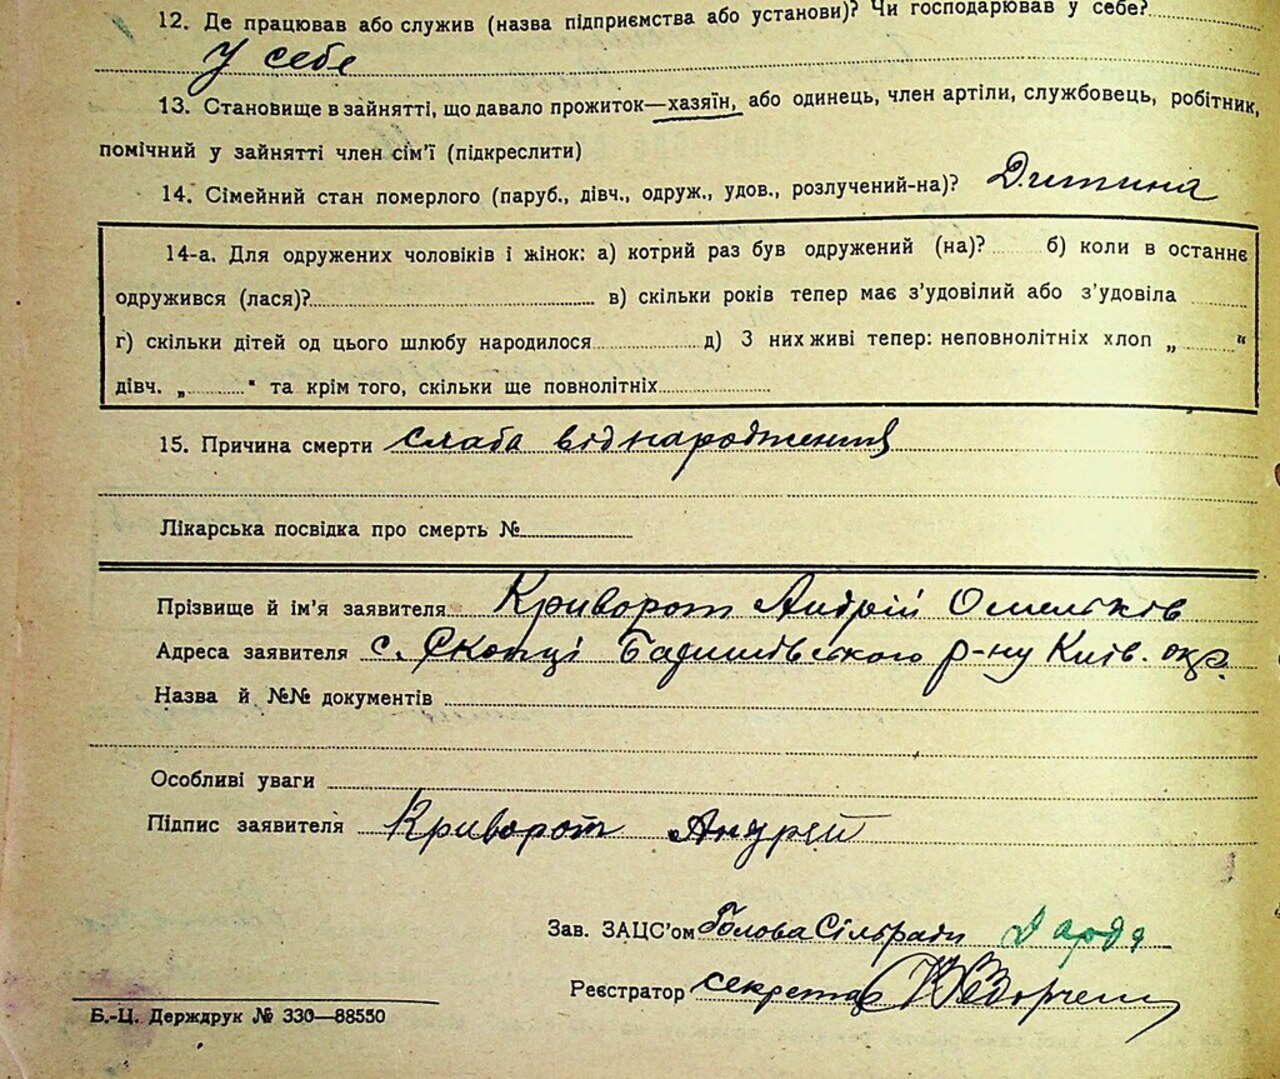 12. Де працював або служив (назва підприємства або установи)? Чи господарював у себе?
У себе
13. Становище в зайнятті, що давало прожиток—хазяїн, або одинець, член артіли, службовець, робітник,
помічний у зайнятті член сім'ї (підкреслити)
14. Сімейний стан померлого (паруб., дівч., одруж., удов., розлучений-на)? Дитина
14-а. Для одружених чоловіків і жінок: а) котрий раз був одружений (на)? б) коли в останнє
одружився (лася)? в) скільки років тепер має з'удовілий або з'удовіла
г) скільки дітей од цього шлюбу народилося д) З них живі тепер: неповнолітніх хлоп „ “
дівч. „ “ та крім того, скільки ще повнолітніх
15. Причина смерти слаба від народження
Лікарська посвідка про смерть №
Прізвище й ім'я заявителя Криворот Андрій Омельків
Адреса заявителя с. Скопці Баришівського р-ну Київ. окр.
Назва й №№ документів
Особливі уваги
Підпис заявителя Криворот Андрей
Зав. ЗАЦС'ом Голова Сільради
Реєстратор секретар
Б.-Ц. Держдрук № 330—88550